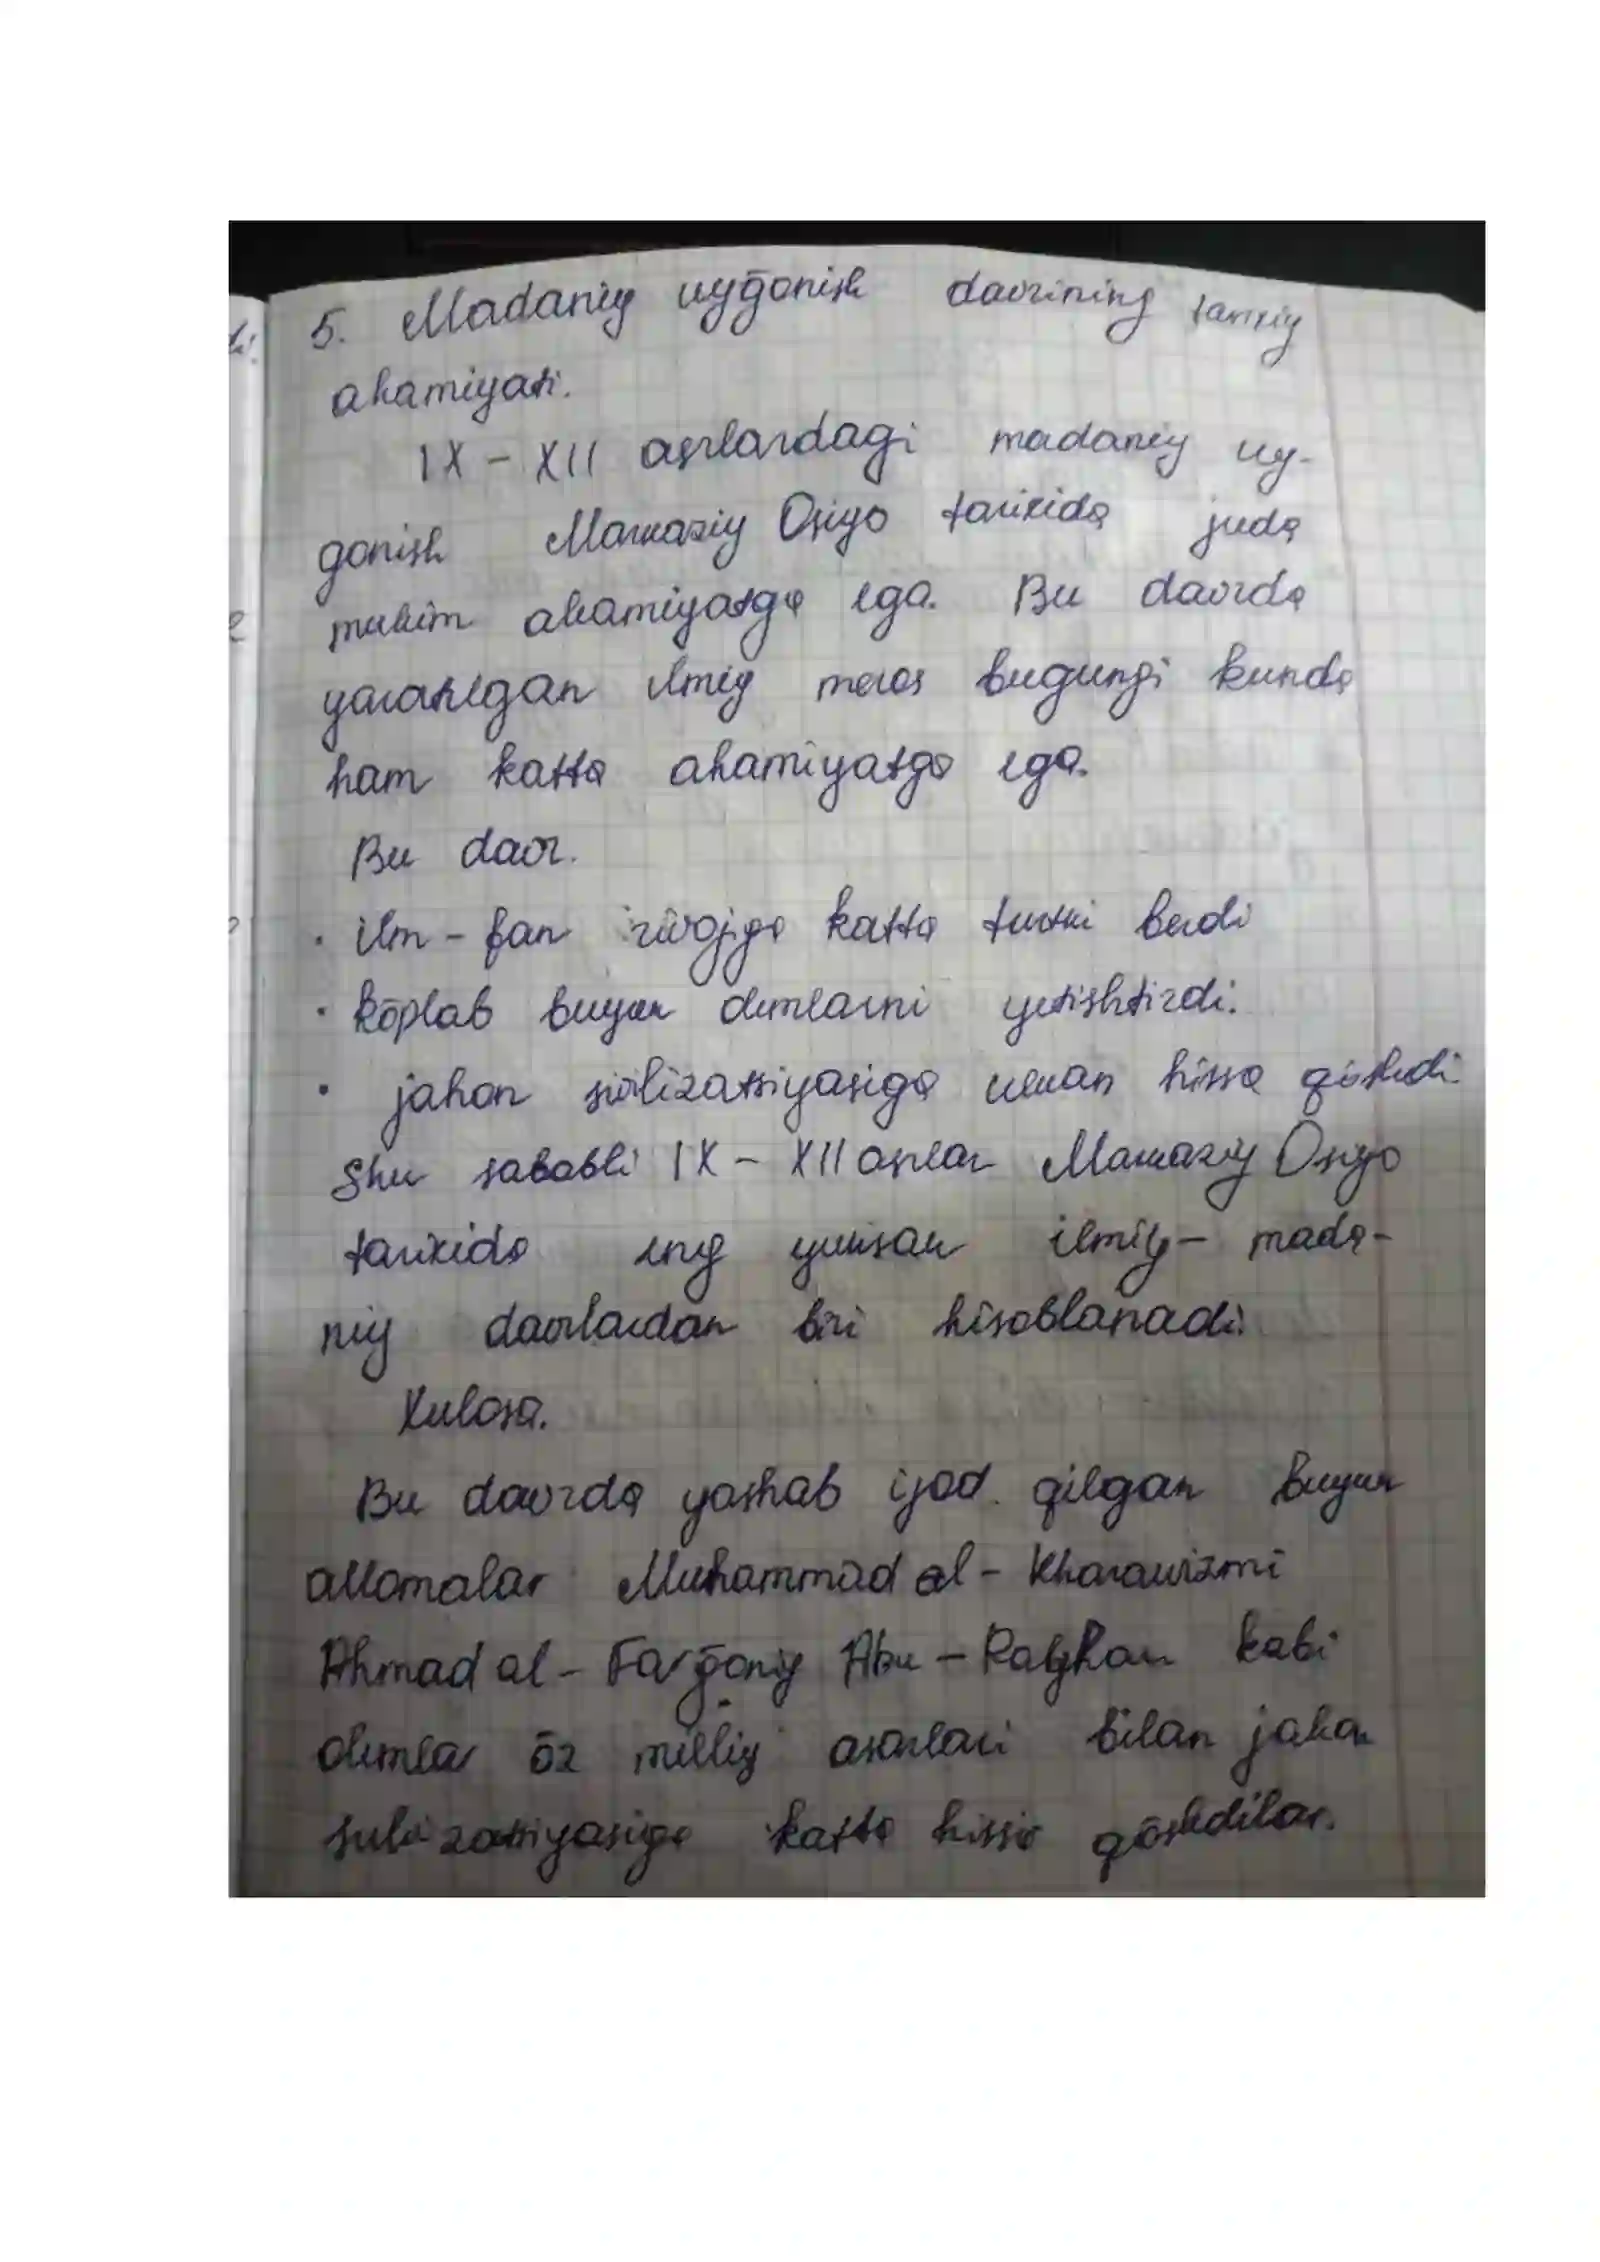 5. Madaniy uyḡonish davrining tarixiy
ahamiyati.
IX - XII asrlardagi madaniy uy-
gonish Markaziy Osiyo tarixida juda
muhim ahamiyatga ega. Bu davrda
yaratilgan ilmiy meros bugungi kunda
ham katta ahamiyatga ega.
Bu davr.
• ilm - fan rivojiga katta turtki berdi
• kōplab buyuk olimlarni yetishtirdi.
• jahon sivilizatsiyasiga ulkan hissa qōshdi.
Shu sababli IX - XII asrlar Markaziy Osiyo
tarixida eng yuksak ilmiy - mada-
niy davrlardan biri hisoblanadi.
Xulosa.
Bu davrda yashab ijod qilgan buyuk
allomalar Muhammad al - Kharawizmi
Ahmad al - Farḡoniy Abu - Rayhon kabi
olimlar ōz milliy asarlari bilan jahon
katta hissa qōshdilar.